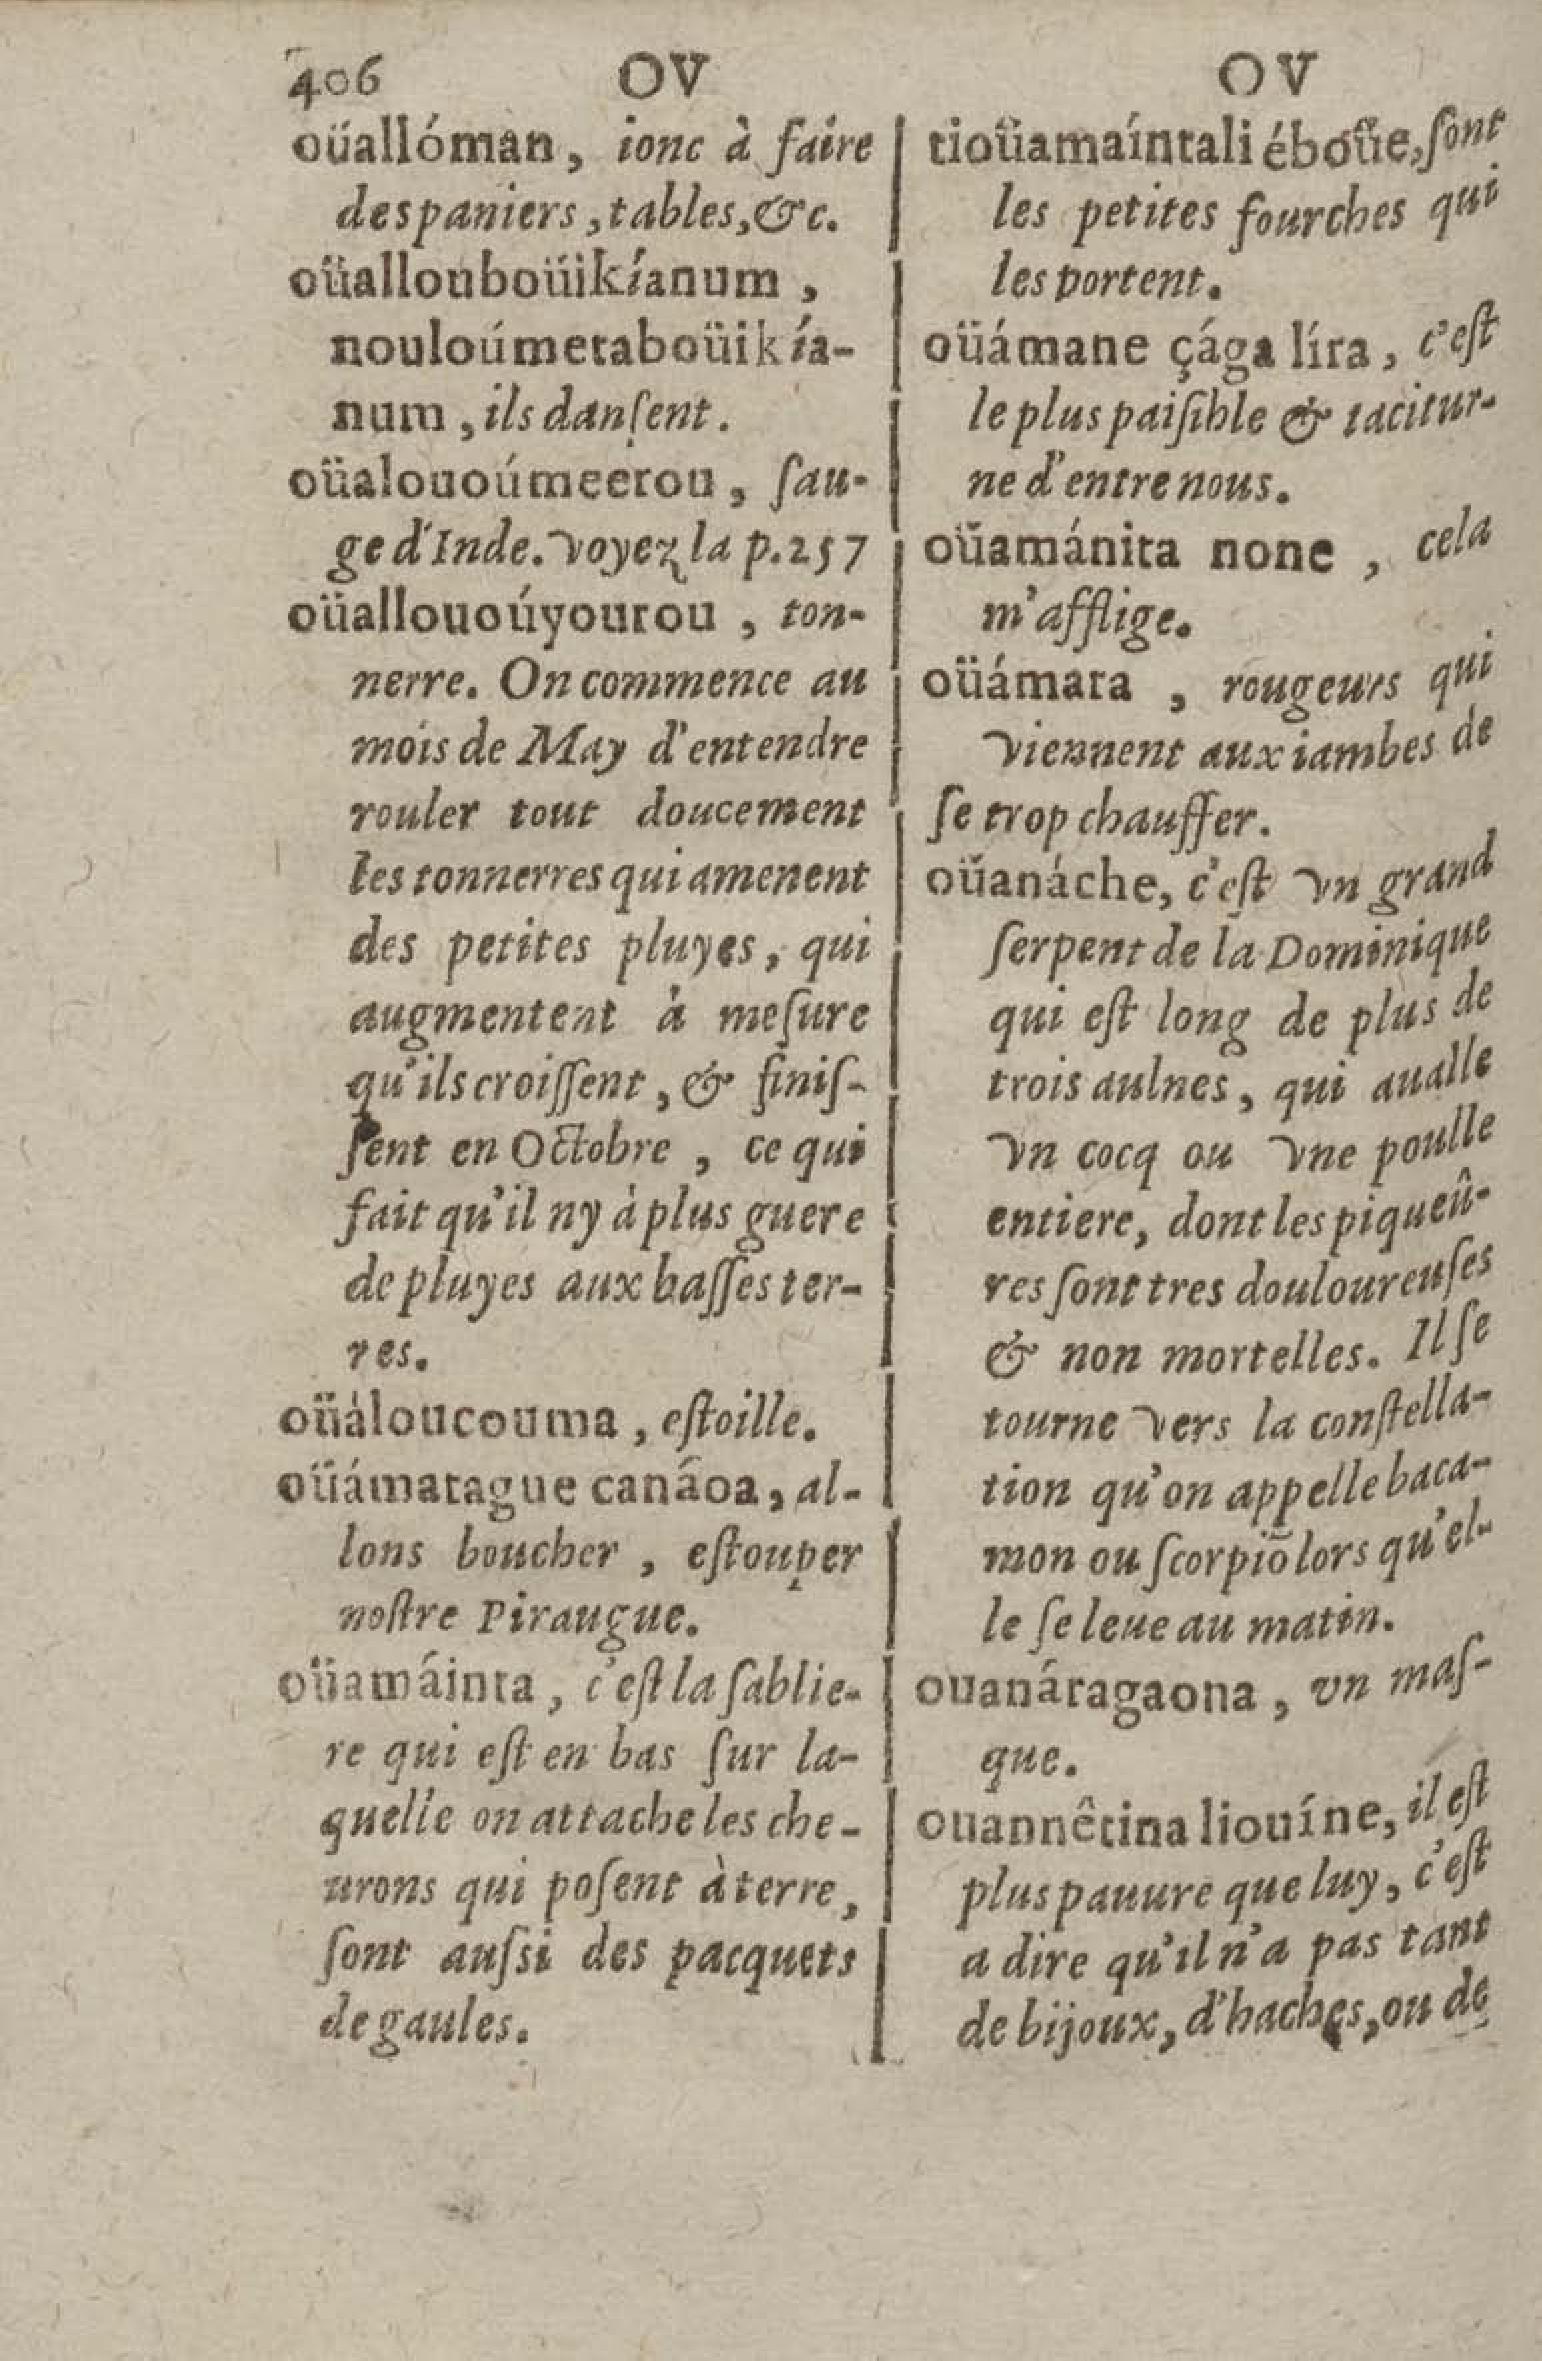 406 OV OV
oüallóman, ionc à faire
des paniers, tables, &c.
oüallouboüikíanum,
nouloúmetaboüikía-
num, ils danſent.
oüalouoúmeerou, ſau-
ge d'Inde. voyez la p. 257
oüallouoúyourou, ton-
nerre. On commence au
mois de May d'entendre
rouler tout doucement
les tonnerres qui amenent
des petites pluyes, qui
augmentent à meſure
qu'ils croiſſent, & finiſ-
ſent en Octobre, ce qui
fait qu'il ny à plus guere
de pluyes aux baſſes ter-
res.
oüàloucouma, eſtoille.
oüámatague canáoa, al-
lons boucher, eſtouper
noſtre Piraugue.
oüamáinta, c'eſt la ſablie-
re qui eſt en bas ſur la-
quelle on attache les che-
urons qui poſent à terre,
ſont auſsi des pacquets
de gaules.
tioüamaíntali éboüe, ſont
les petites fourches qui
les portent.
oüámane çága líra, c'eſt
le plus paiſible & tacitur-
ne d'entre nous.
oüamánita none, cela
m'afflige.
oüámara, rougeurs qui
viennent aux iambes de
ſe trop chauffer.
oüanáche, c'eſt vn grand
ſerpent de la Dominique
qui eſt long de plus de
trois aulnes, qui aualle
vn cocq ou vne poulle
entiere, dont les piqueû-
res ſont tres douloureuſes
& non mortelles. Il ſe
tourne vers la conſtella-
tion qu'on appelle baca-
mon ou ſcorpiõ lors qu'el-
le ſe leue au matin.
ouanáragaona, vn maſ-
que.
ouannêtina liouíne, il eſt
plus pauure que luy, c'eſt
a dire qu'il n'a pas tant
de bijoux, d'haches, ou de